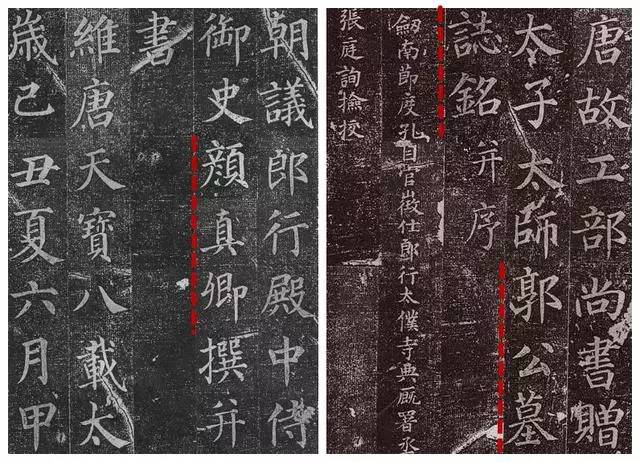 唐故工部尚書贈
太子太師郭公墓
誌銘并序
劔南節度孔目官徵仕郎行太僕寺典廐署丞
張庭詢撿挍
朝議郎行殿中侍
御史顏真卿撰并
書
維唐天寶八載太
歲己丑夏六月甲